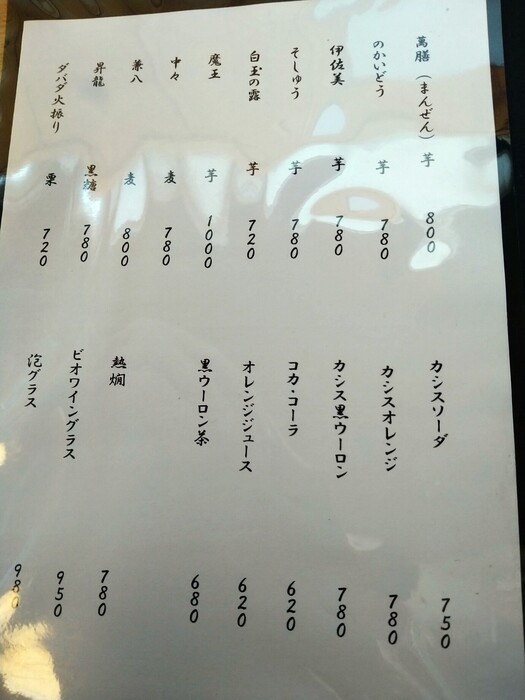 萬膳（まんぜん） 芋 800
のかいどう 芋 780
伊佐美 芋 780
そしゅう 芋 780
白玉の露 芋 720
魔王 芋 1000
中々 麦 780
兼八 麦 800
昇龍 黒糖 780
ダバダ火振り 栗 720
カシスソーダ 750
カシスオレンジ 780
カシス黒ウーロン 780
コカ・コーラ 620
オレンジジュース 620
黒ウーロン茶 680
熱燗 780
ビオワイングラス 950
泡グラス 980